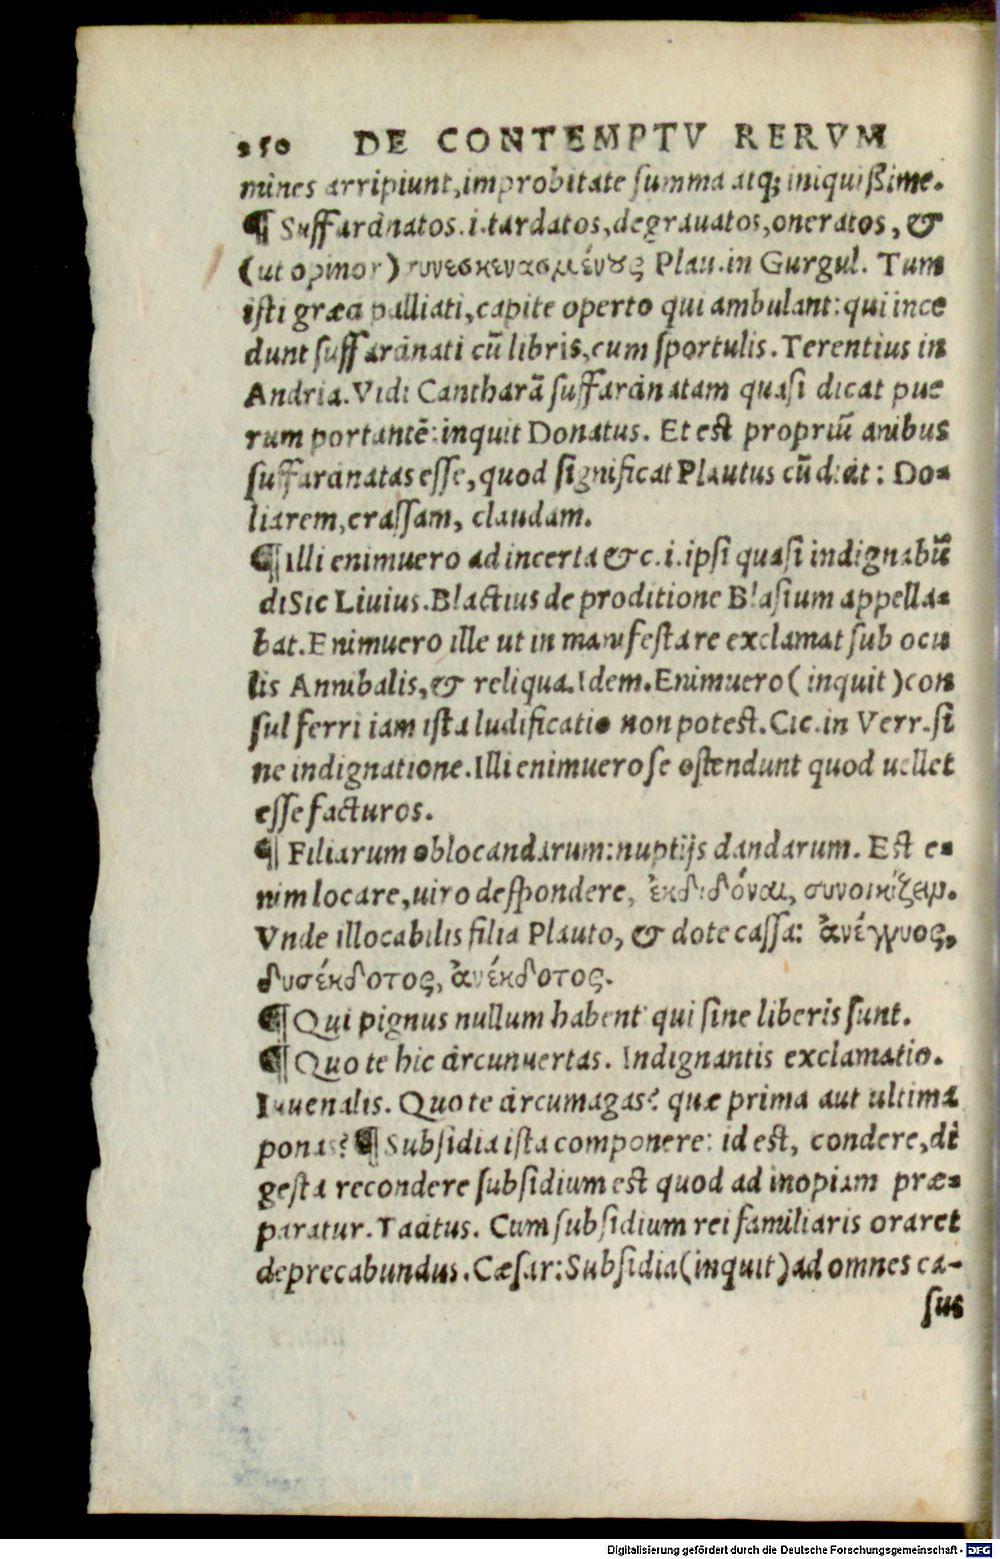 250 DE CONTEMPTV RERVM
mines arripiunt, improbitate summa atq; iniquißime.
¶ Suffarcinatos.i.tardatos, degrauatos, oneratos, &
(ut opinor) συνεσκευασμένȣς Plau.in Gurgul. Tum
isti græci palliati, capite operto qui ambulant: qui ince
dunt suffarcinati cũ libris, cum sportulis. Terentius in
Andria. Vidi Cantharã suffarcinatam quasi dicat pue
rum portantẽ: inquit Donatus. Et est propriũ anibus
suffarcinatas esse, quod significat Plautus cũ dicit: Do-
liarem, crassam, claudam.
¶ Illi enimuero ad incerta &c.i.ipsi quasi indignabũ
di Sic Liuius. Blactius de proditione Blasium appella-
bat. Enimuero ille ut in manifesta re exclamat sub ocu
lis Annibalis, & reliqua. Idem. Enimuero (inquit) con
sul ferri iam ista ludificatio non potest. Cic. in Verr. si
ne indignatione. Illi enimuero se ostendunt quod uellet
esse facturos.
¶ Filiarum oblocandarum: nuptijs dandarum. Est e-
nim locare, uiro despondere, ἐκδιδόναι, συνοικίζειν.
Vnde illocabilis filia Plauto, & dote cassa: ἀνέγγυος,
δυσέκδοτος, ἀνέκδοτος.
¶ Qui pignus nullum habent qui sine liberis sunt.
¶ Quo te hic circunuertas. Indignantis exclamatio.
Iuuenalis. Quo te circumagas? quæ prima aut ultima
ponas? ¶ Subsidia ista componere: id est, condere, di
gesta recondere subsidium est quod ad inopiam præ-
paratur. Tacitus. Cum subsidium rei familiaris oraret
deprecabundus. Cæsar: Subsidia (inquit) ad omnes ca-
sus
Digitalisierung gefördert durch die Deutsche Forschungsgemeinschaft - DFG